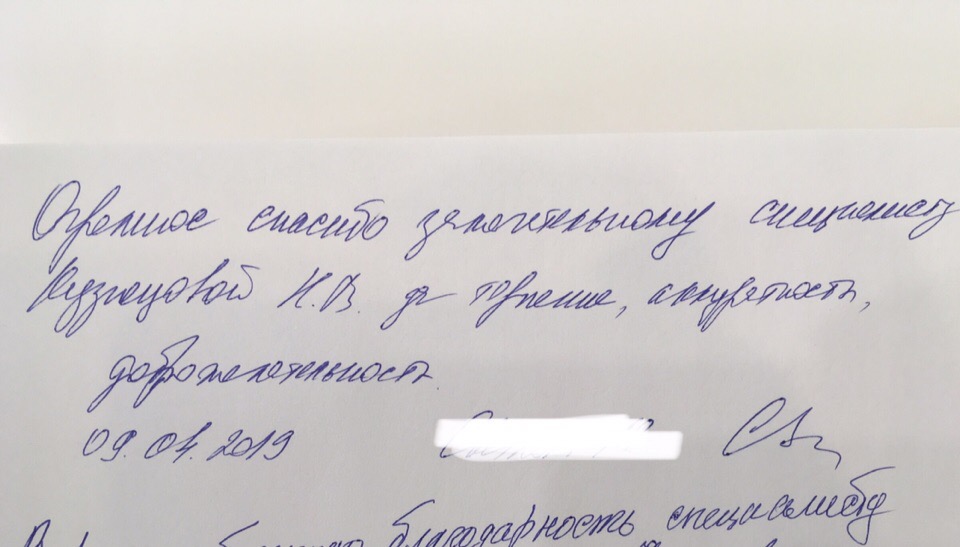 Огромное спасибо замечательному специалисту
Кузнецовой Н.В. за терпение, аккуратность,
доброжелательность.
09.04.2019
благодарность специалисту